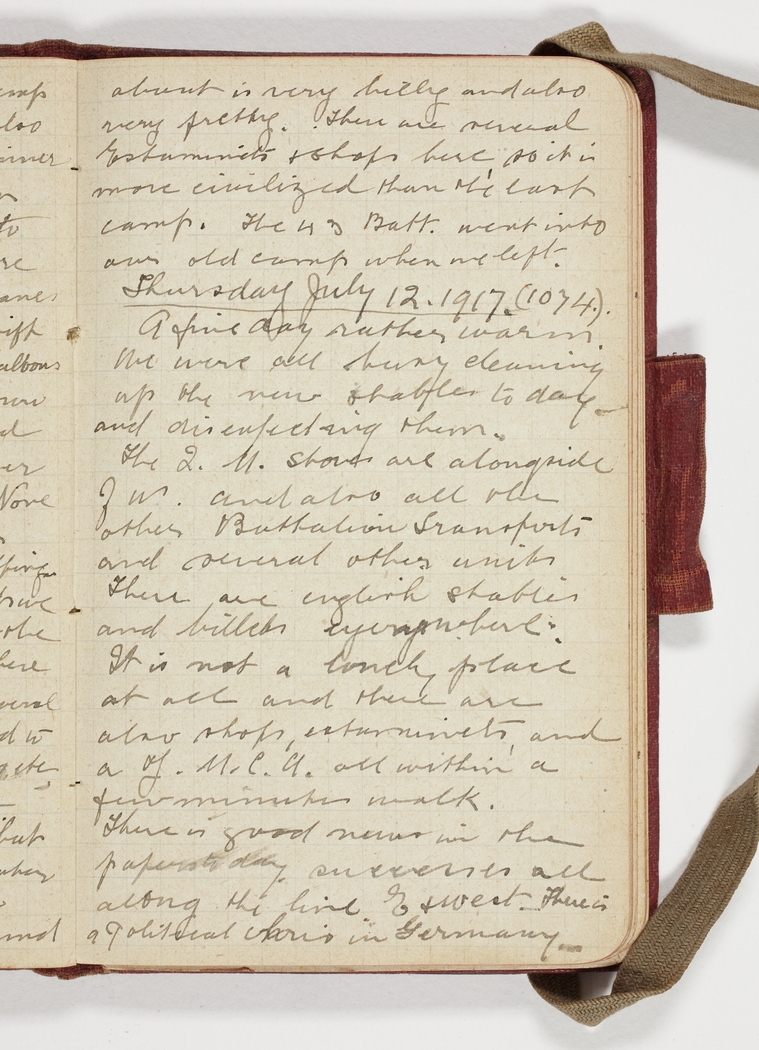 about is very hilly and also
very pretty. There are several
Estaminets & shops here, so it is
more civilized than the last
camp. The 43 Batt. went into
our old camp when we left.
Thursday July 12. 1917. (1074).
A fine day rather warm.
We were all busy cleaning
up the new stables to day
and disenfecting them.
The Q. M. Stores are alongside
of us. and also all the
other Battalion Transports
and several other units
There are english stables
and billets everywhere.
It is not a lonely place
at all and there are
also shops, estaminets, and
a Y. M. C. A. all within a
few minutes walk.
There is good news in the
papers to day, successes all
along the line E & West. There is
a Political crisis in Germany